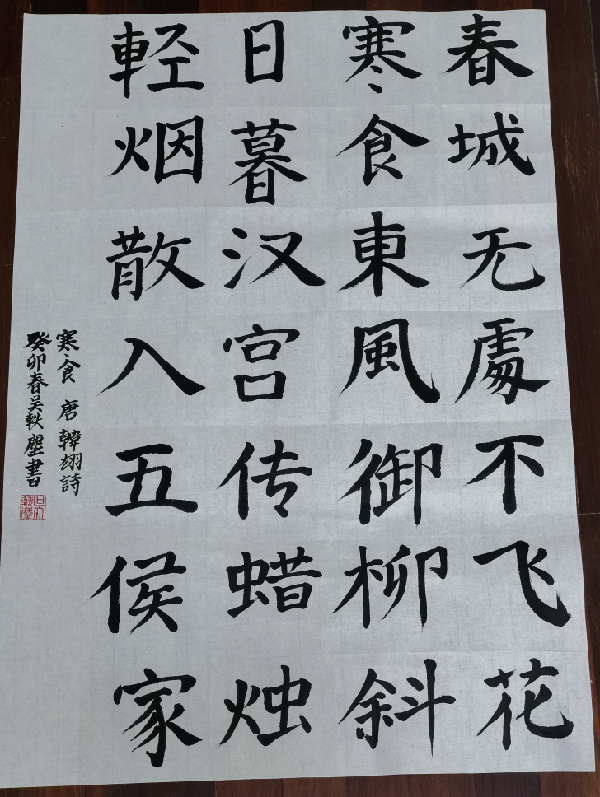 春城无處不飞花
寒食東風御柳斜
日暮汉宫传蜡烛
軽烟散入五侯家
寒食 唐 韓翃詩
癸卯春吴軼壓書